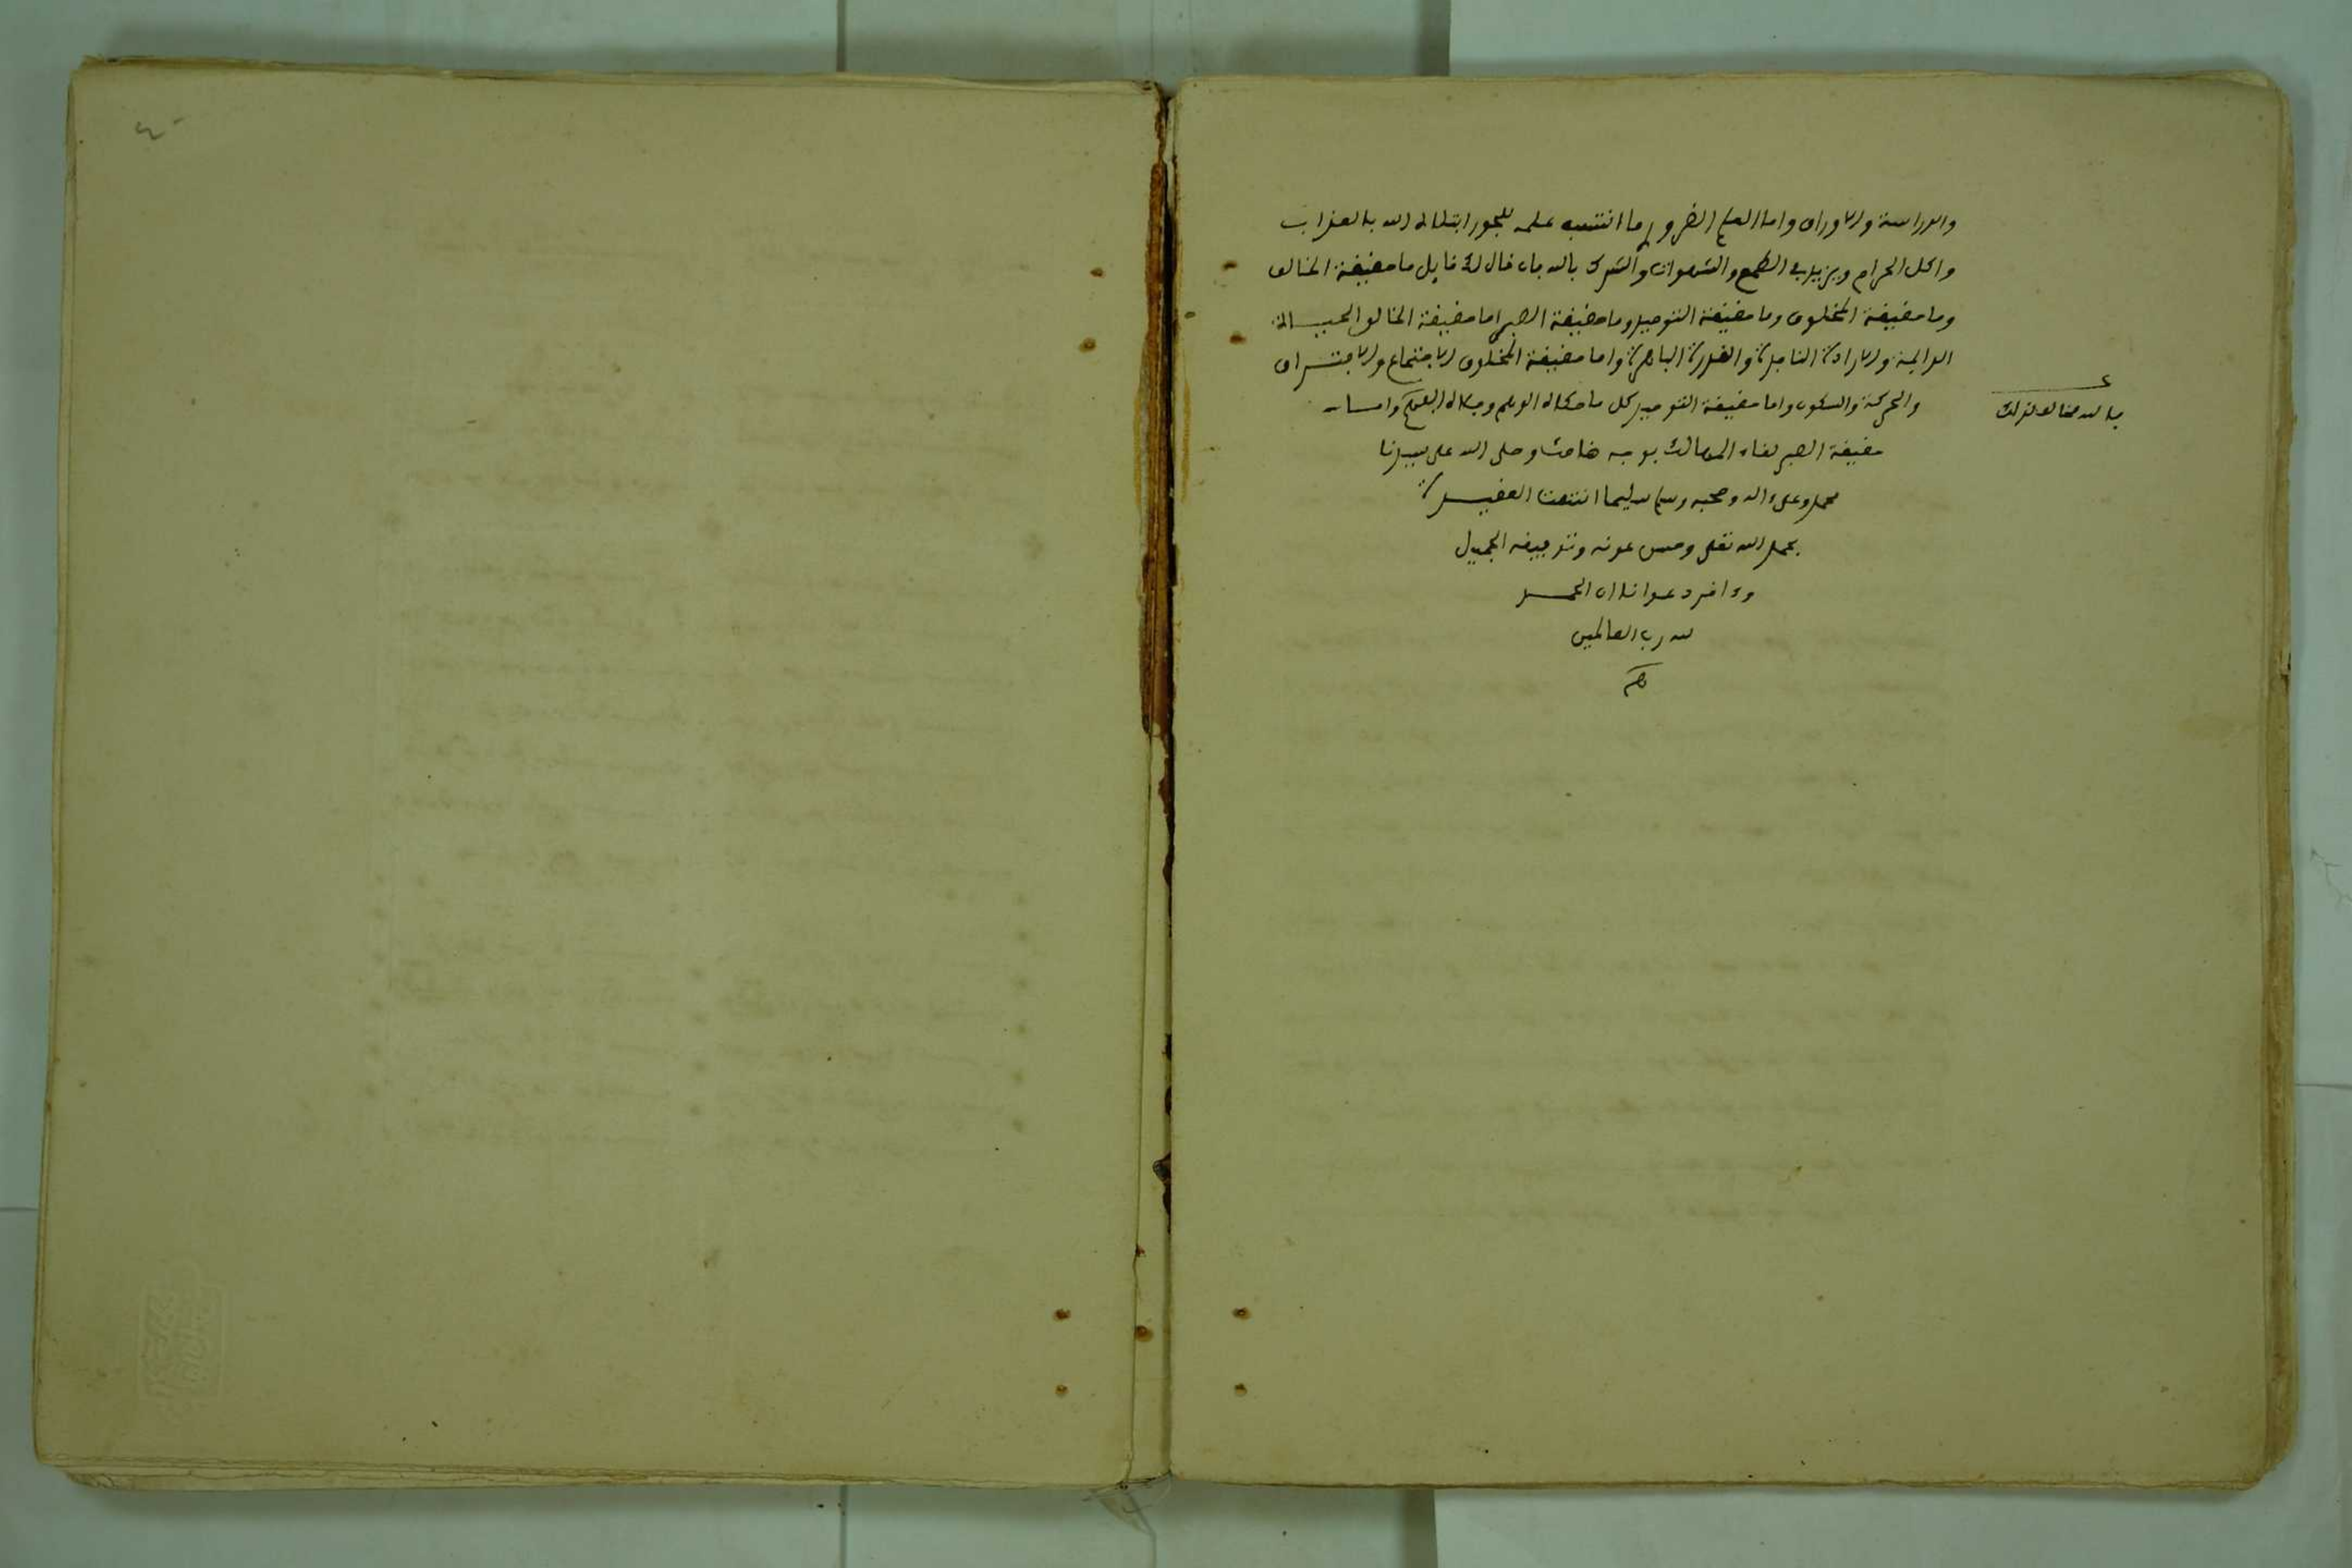 والدراسة والاوراق واما العلم الضروري ما انتسبه علمه للجور ابتلاه الله بالعذاب
واكل الحرام ويزيد في الطمع والشهوات والشرك بالله فان قال لك قايل ما حقيقة الخالق
وما حقيقة المخلوق وما حقيقة التوحيد وما حقيقة الصبر اما حقيقة الخالق الحيـــاة
الدايمة والارادة النافذة والقدرة الباهرة واما حقيقة المخلوق الاجتماع والافتـــراق
والحركة والسكون واما حقيقة التوحيد كل ما حكاه الوهم وجلاه الفهم وامـــا
بالله مخالف لذلك
حقيقة الصبر لقاء المهالك بوجه ضاحك وصلى الله على سيدنا
محمد وعلى ءاله وصحبه وسلم تسليما انتهت العقيـــدة
بحمد الله تعلى وحسن عونه وتوفيقه الجميل
وءاخر دعوانا ان الحمـــد
لله رب العالمين